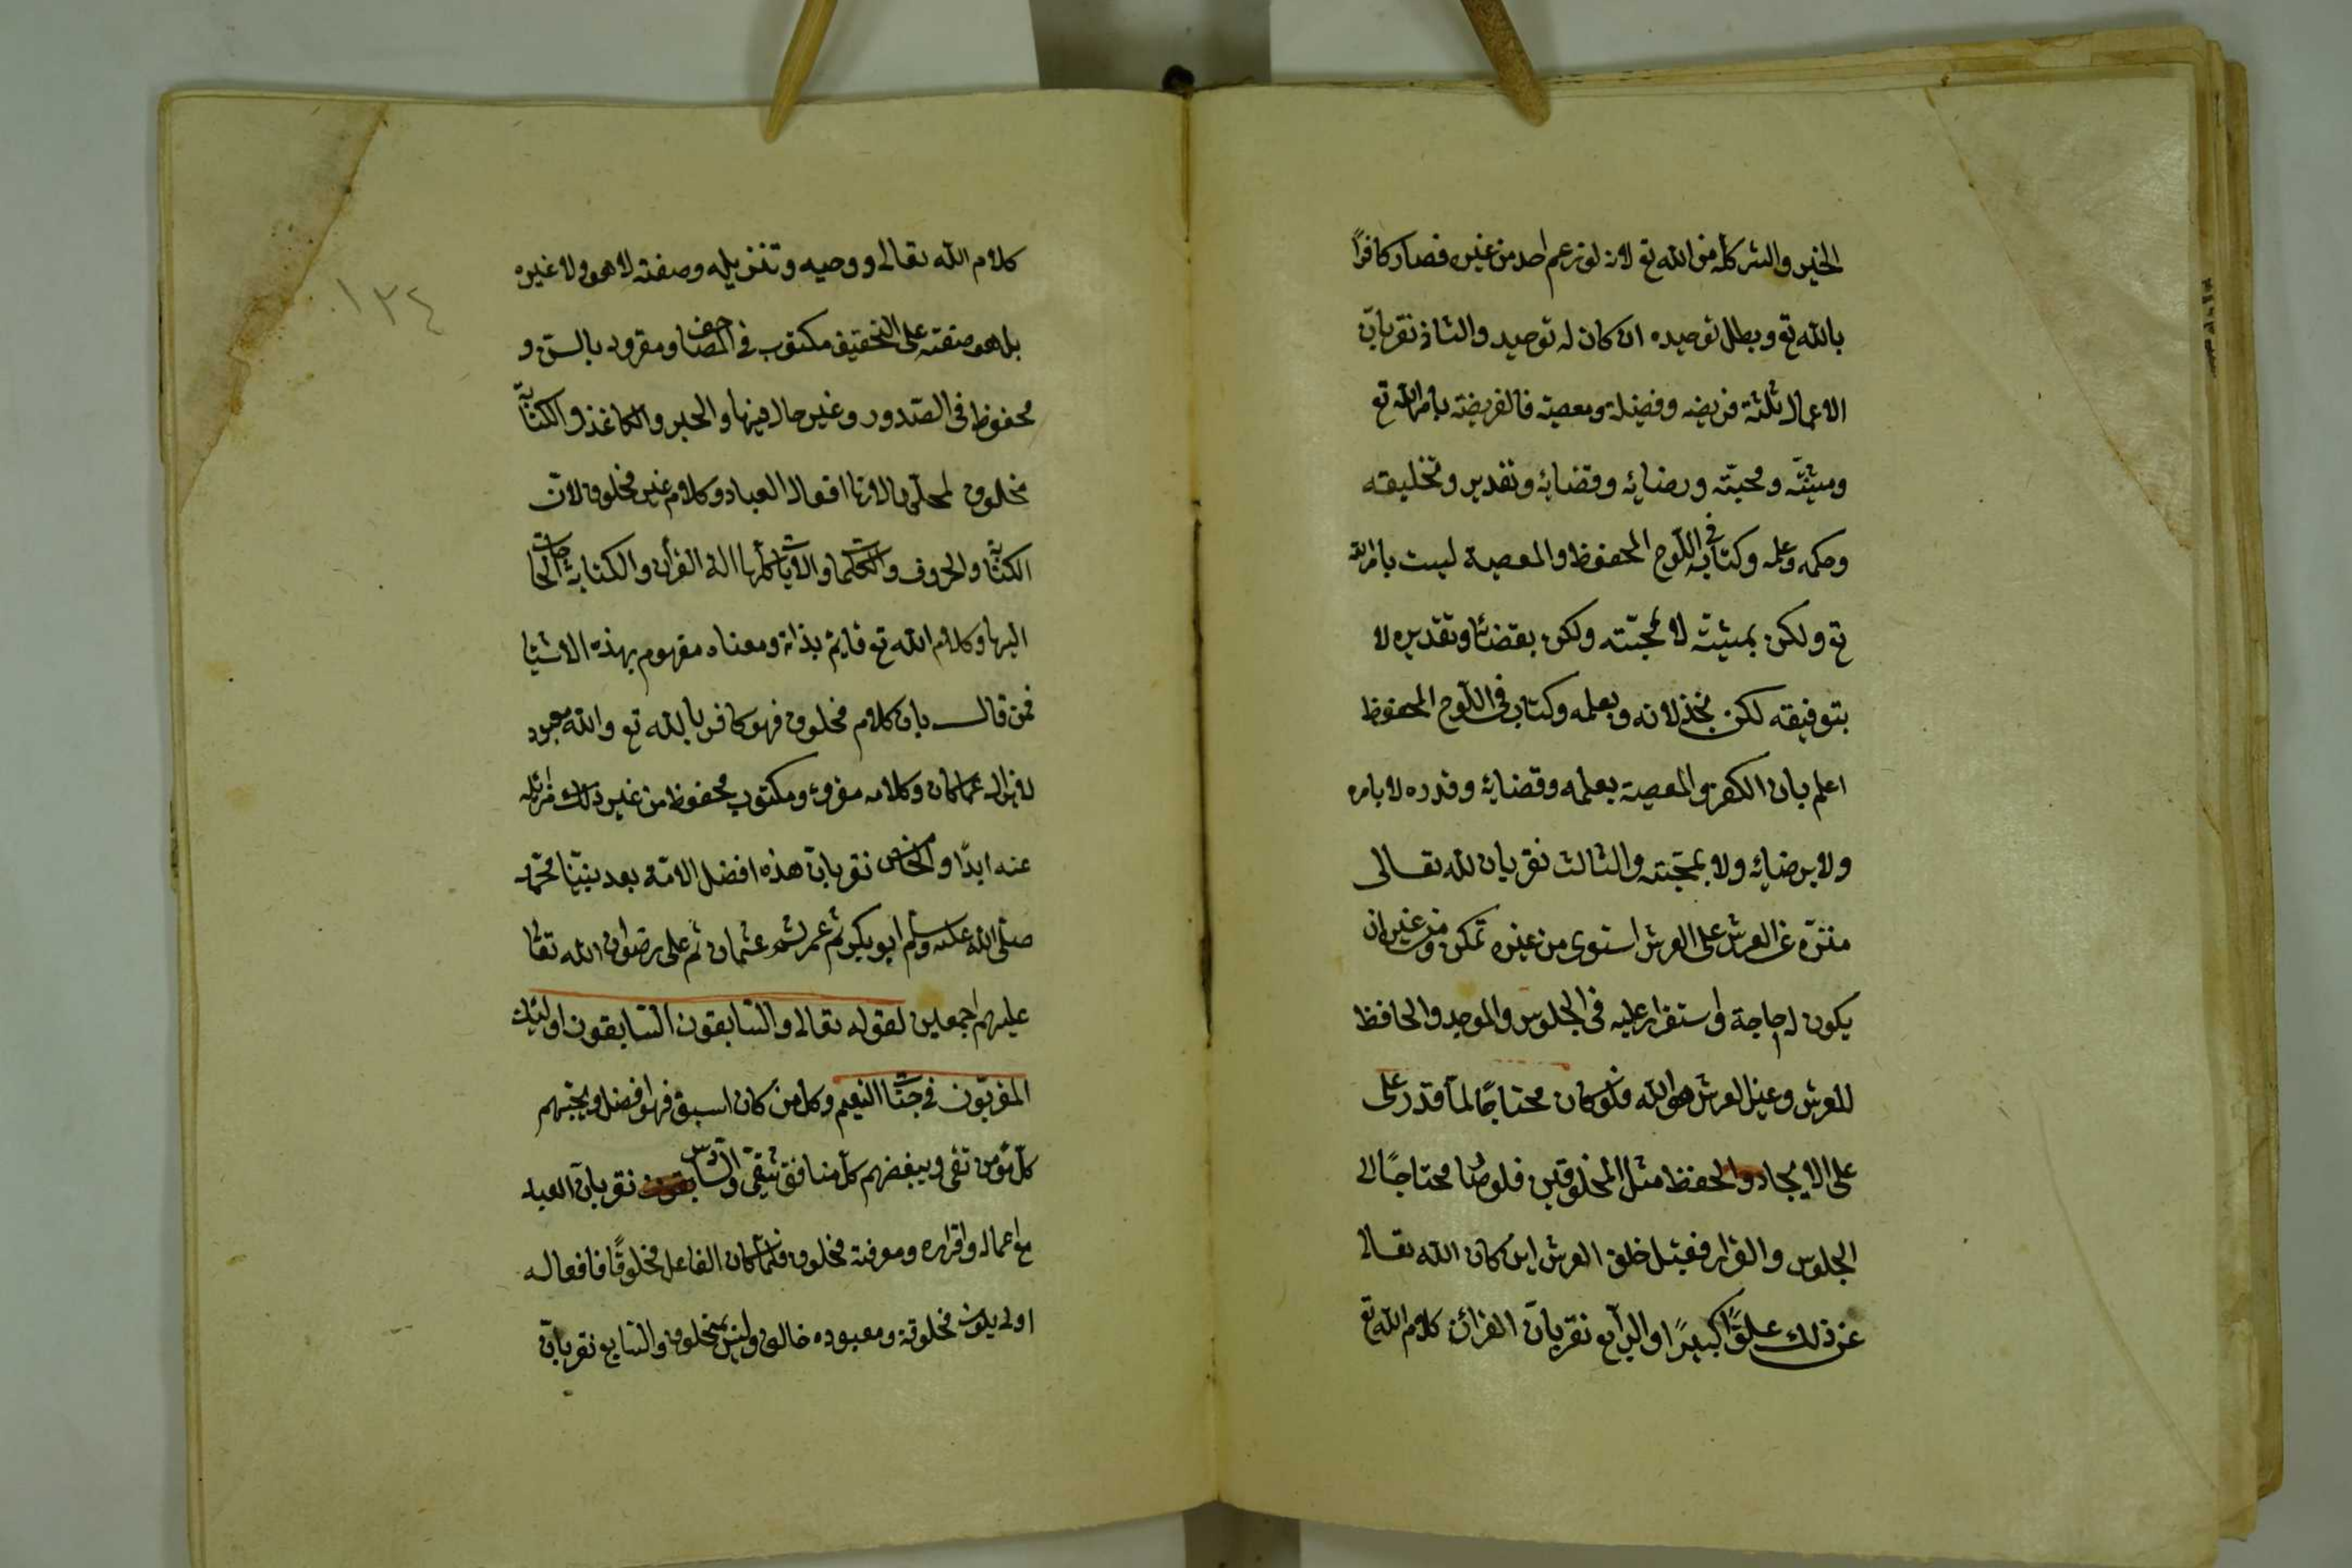 الخير والشر كله من الله تع لانه لو زعم احد من غيره فصار كافرًا
بالله تع وبطل توحيده ان كان له توحيد والثانى نقر بانّ
الاعمال ثلثة فريضه وفضيلة ومعصية فالفريضة بامر الله تع
ومشيّته ومحبّته ورضائه وقضائه وتقديره وتخليقه
وحكمه وعلمه وكتابته فى اللّوح المحفوظ والمعصية ليست بامر الله
تع ولكن بمشيته لا بمحبّته ولكن بقضائه وتقديره لا
بتوفيقه لكن بخذلانه وبعلمه وكتابه فى اللّوح المحفوظ
اعلم بان الكفر والمعصية بعلمه وقضائه وقدره لا بامره
ولا برضائه ولا بمحبّته والثالث نقر بان لله تعالى
منزّه عن العرش على العرش استوى من غيره تمكن ومن غير ان
يكون له حاجة واستقرار عليه فى الجلوس والموجد والحافظ
للعرش وغير العرش هو الله فلو كان محتاجًا لما قدر على
على الايجاد والحفظ مثل المخلوقين فلو صار محتاجًا الى
الجلوس والقرار فقبل خلق العرش اين كان الله تعالى
عن ذلك علوًّا كبيرًا والرّابع نقر بانّ القرائن كلام الله تع
كلام الله تعالى ووحيه وتنزيله وصفته لا هو ولا غيره
بل هو صفته على التحقيق مكتوب فى المصاحف ومقروء بالسن و
محفوظ فى الصّدور وغير حال فيها والحبر والكاغذ والكتابة
مخلوق لانها افعال العباد وكلام غير مخلوق لانّ
الكتابة والحروف والكلمات والايات كلّها الة القرأن والكتابة الحاجات
اليها وكلام الله تع قايم بذاته ومعناه مفهوم بهذه الاشيا
فمن قال بان كلام مخلوق فهو كافر بالله تع والله معبود
لا يزال عما كان وكلامه مقروء ومكتوب محفوظ من غير ذلك مزائله
عنه ابدًا والخامس نقر بانّ هذه افضل الامّة بعد نبيّنا محمّد
صلّى الله عليه وسلّم ابو بكر ثم عمر ثم عثمان ثم على رضوان الله تعا
عليهم اجمعين لقوله تعالى والسّابقون السّابقون اولئك
المقربّون فى جنّات النعيم وكل من كان اسبق فهو افضل ويحبّهم
كلّ مؤمن تقى ويبغضهم كلّ منافق شقىّ والسّادس نقر بانّ العبد
مع اعماله واقراره ومعرفته مخلوق فلمّا كان الفاعل مخلوقًا فافعاله
اولى يكون مخلوقة ومعبوده خالق وليس بمخلوق والسّابع نقر بانّ
١٣٤